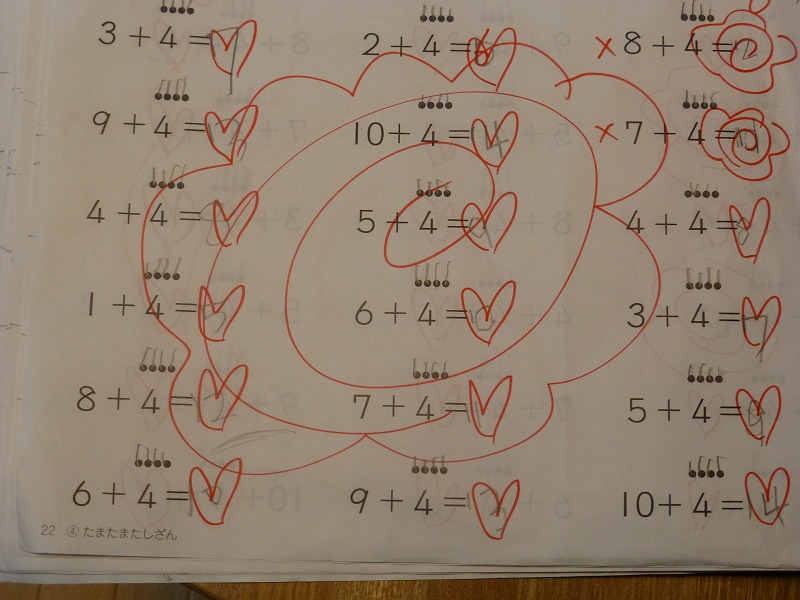 3+4=7
2+4=6
×8+4=
9+4=
10+4=14
×7+4=
4+4=8
5+4=9
4+4=8
1+4=5
6+4=10
3+4=7
8+4=12
7+4=11
5+4=9
6+4=10
9+4=13
10+4=14
22 ④たまたまたしざん